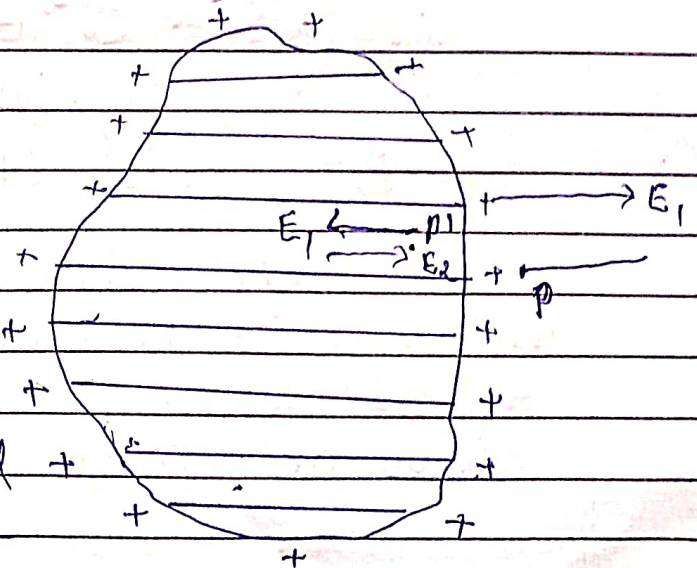 + +
+ +
+ +
+ + E₁
E₁ p1
E₂
+ + p
+ +
+ +
+ +
+ +
+